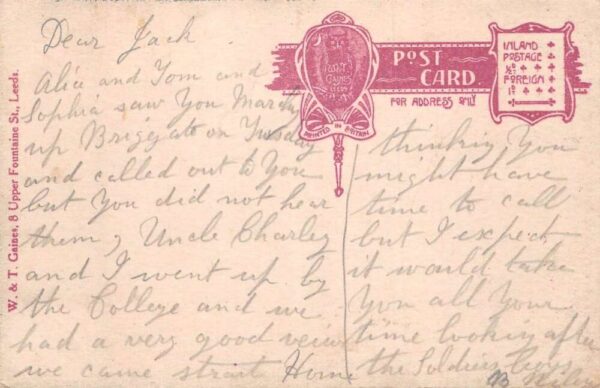 Dear Jack
Alice and Tom and
Sophia saw You
up Briggate on Tusday
and called out to You
but You did not hear
them, Uncle Charley
and I went up by
the College and we
had a very good veiw
we came strait Home
thinking You
might have
time to call
but I expect
it would take
You all Your
time looking after
the Soldiers
POST
CARD
FOR ADDRESS ONLY
W.&T.
GAINES
LEEDS
PRINTED IN BRITAIN
INLAND
POSTAGE
½D
FOREIGN
1D
W. & T. Gaines, 8 Upper Fountaine St., Leeds.